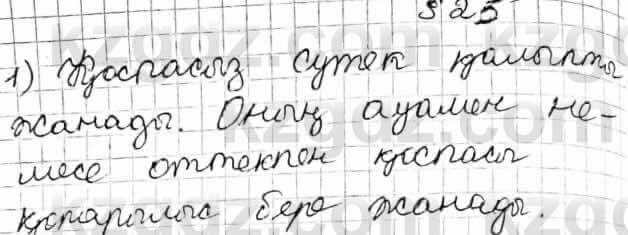 § 25
1) Қоспасыз сутек қалыпты
жанады. Оның ауамен не-
месе оттекпен қоспасы
қопарылыс бере жанады.